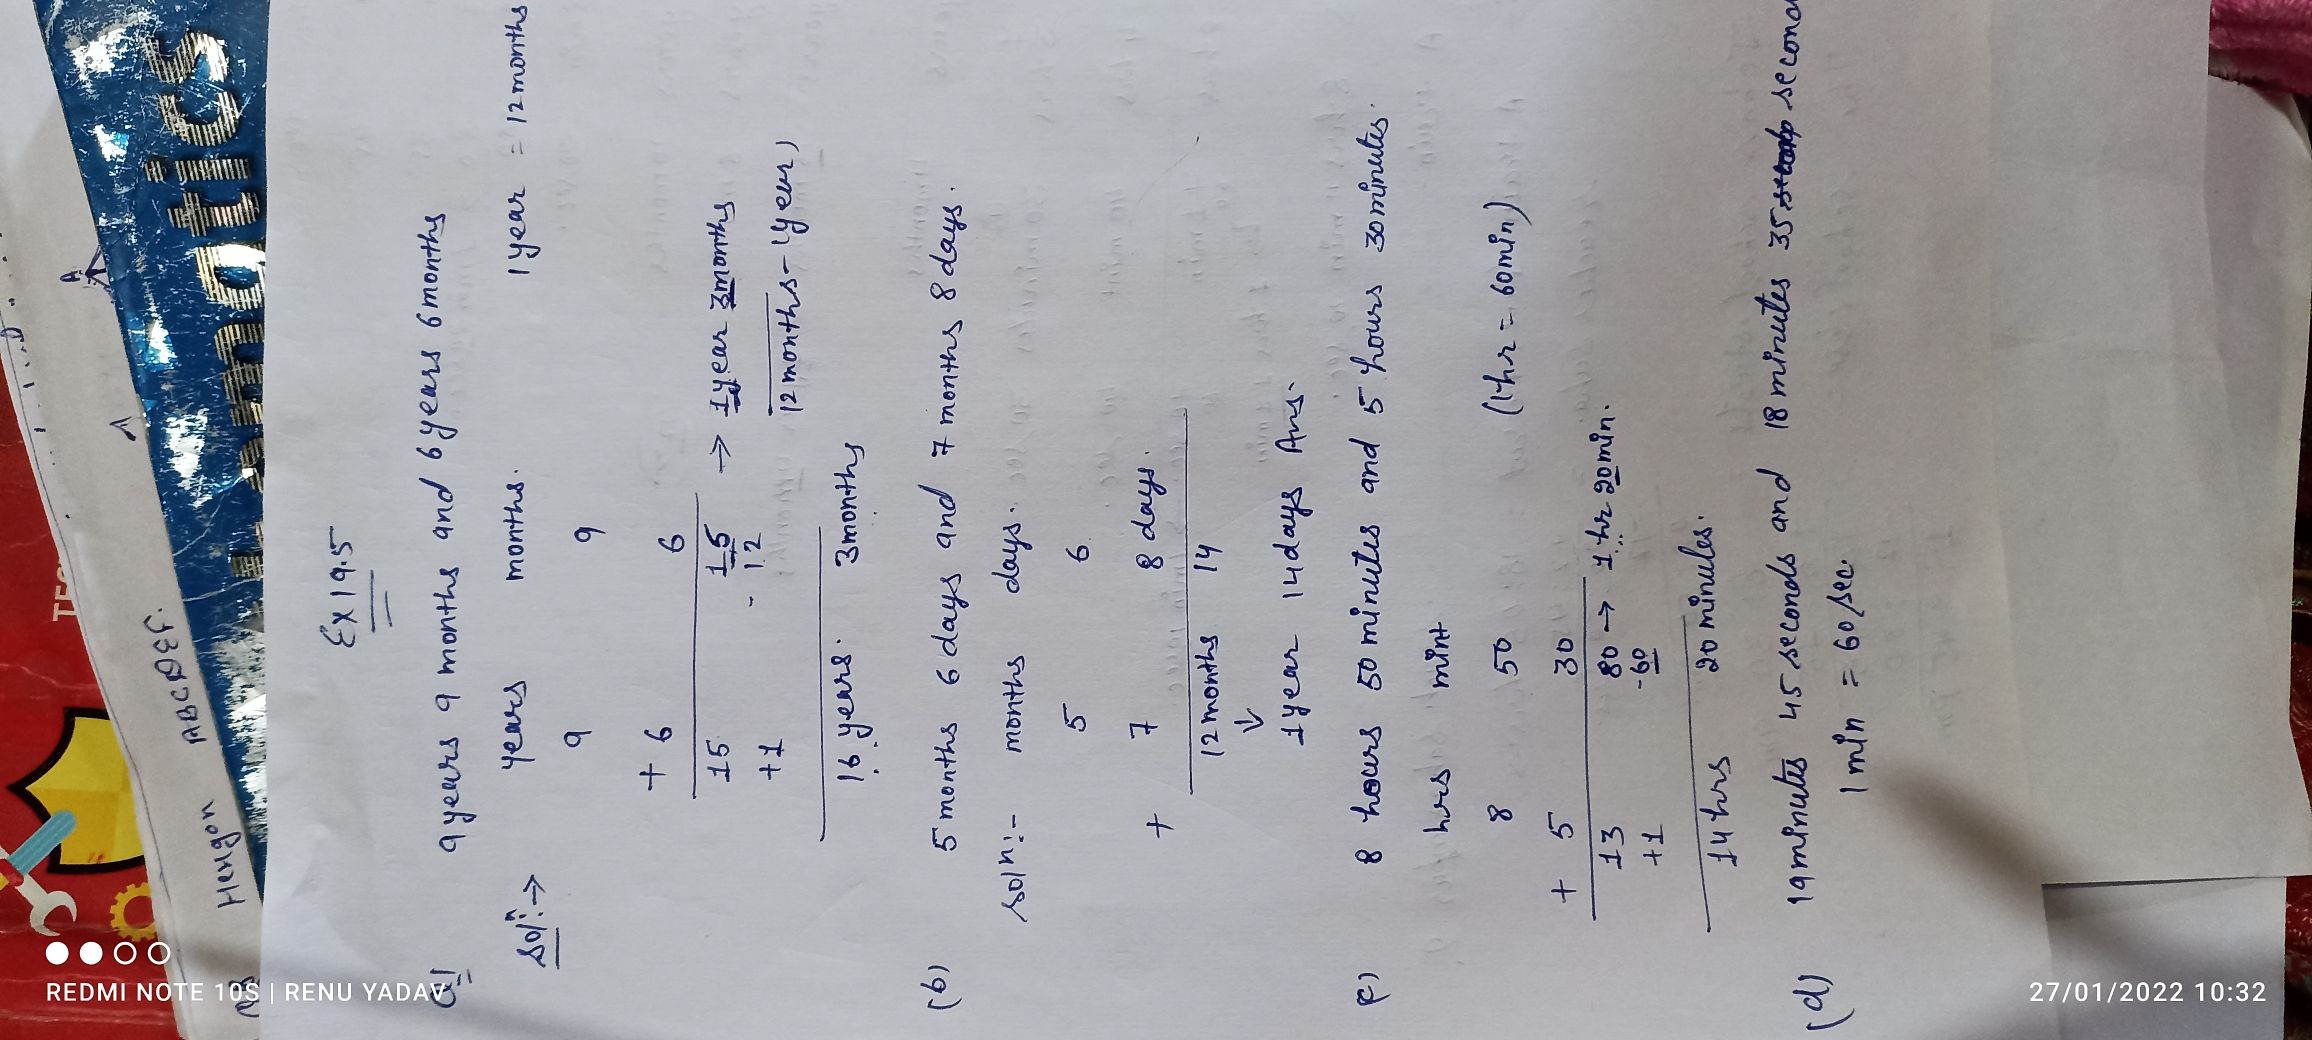 Ex 19.5
Q1 9 years 9 months and 6 years 6 months
soln:→ years months. 1 year = 12 months
9 9
+ 6 6
15 15 → 1 year 3 months
+1 - 12 12 months - 1 year)
16 years. 3 months
(b) 5 months 6 days and 7 months 8 days.
soln:- months days.
5 6
+ 7 8 days.
12 months 14
↓
1 year 14 days Ans.
(c) 8 hours 50 minutes and 5 hours 30 minutes.
hrs mint
8 50 (1hr = 60min)
+ 5 30
13 80 → 1 hr 20 min.
+1 -60
14 hrs 20 minutes.
(d) 19 minutes 45 seconds and 18 minutes 35 secon
1 min = 60 sec.
Hengon ABCDEF.
A
A
matics
TE
REDMI NOTE 10S | RENU YADAV
27/01/2022 10:32